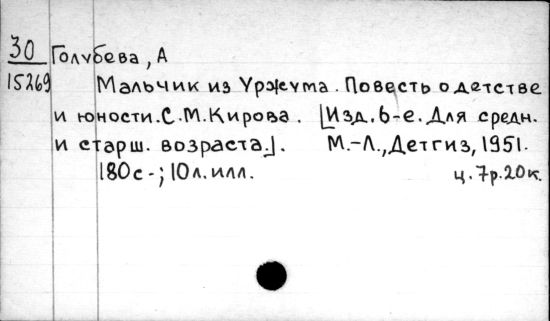 30 Голубева, А
15269 Мальчик из Уржума. Повесть о детстве
и юности С.М.Кирова. [Изд. 6-е. Для средн.
и старш. возраста]. М.-Л., Детгиз, 1951.
180с-; 10л. илл. ц. 7р.20к.